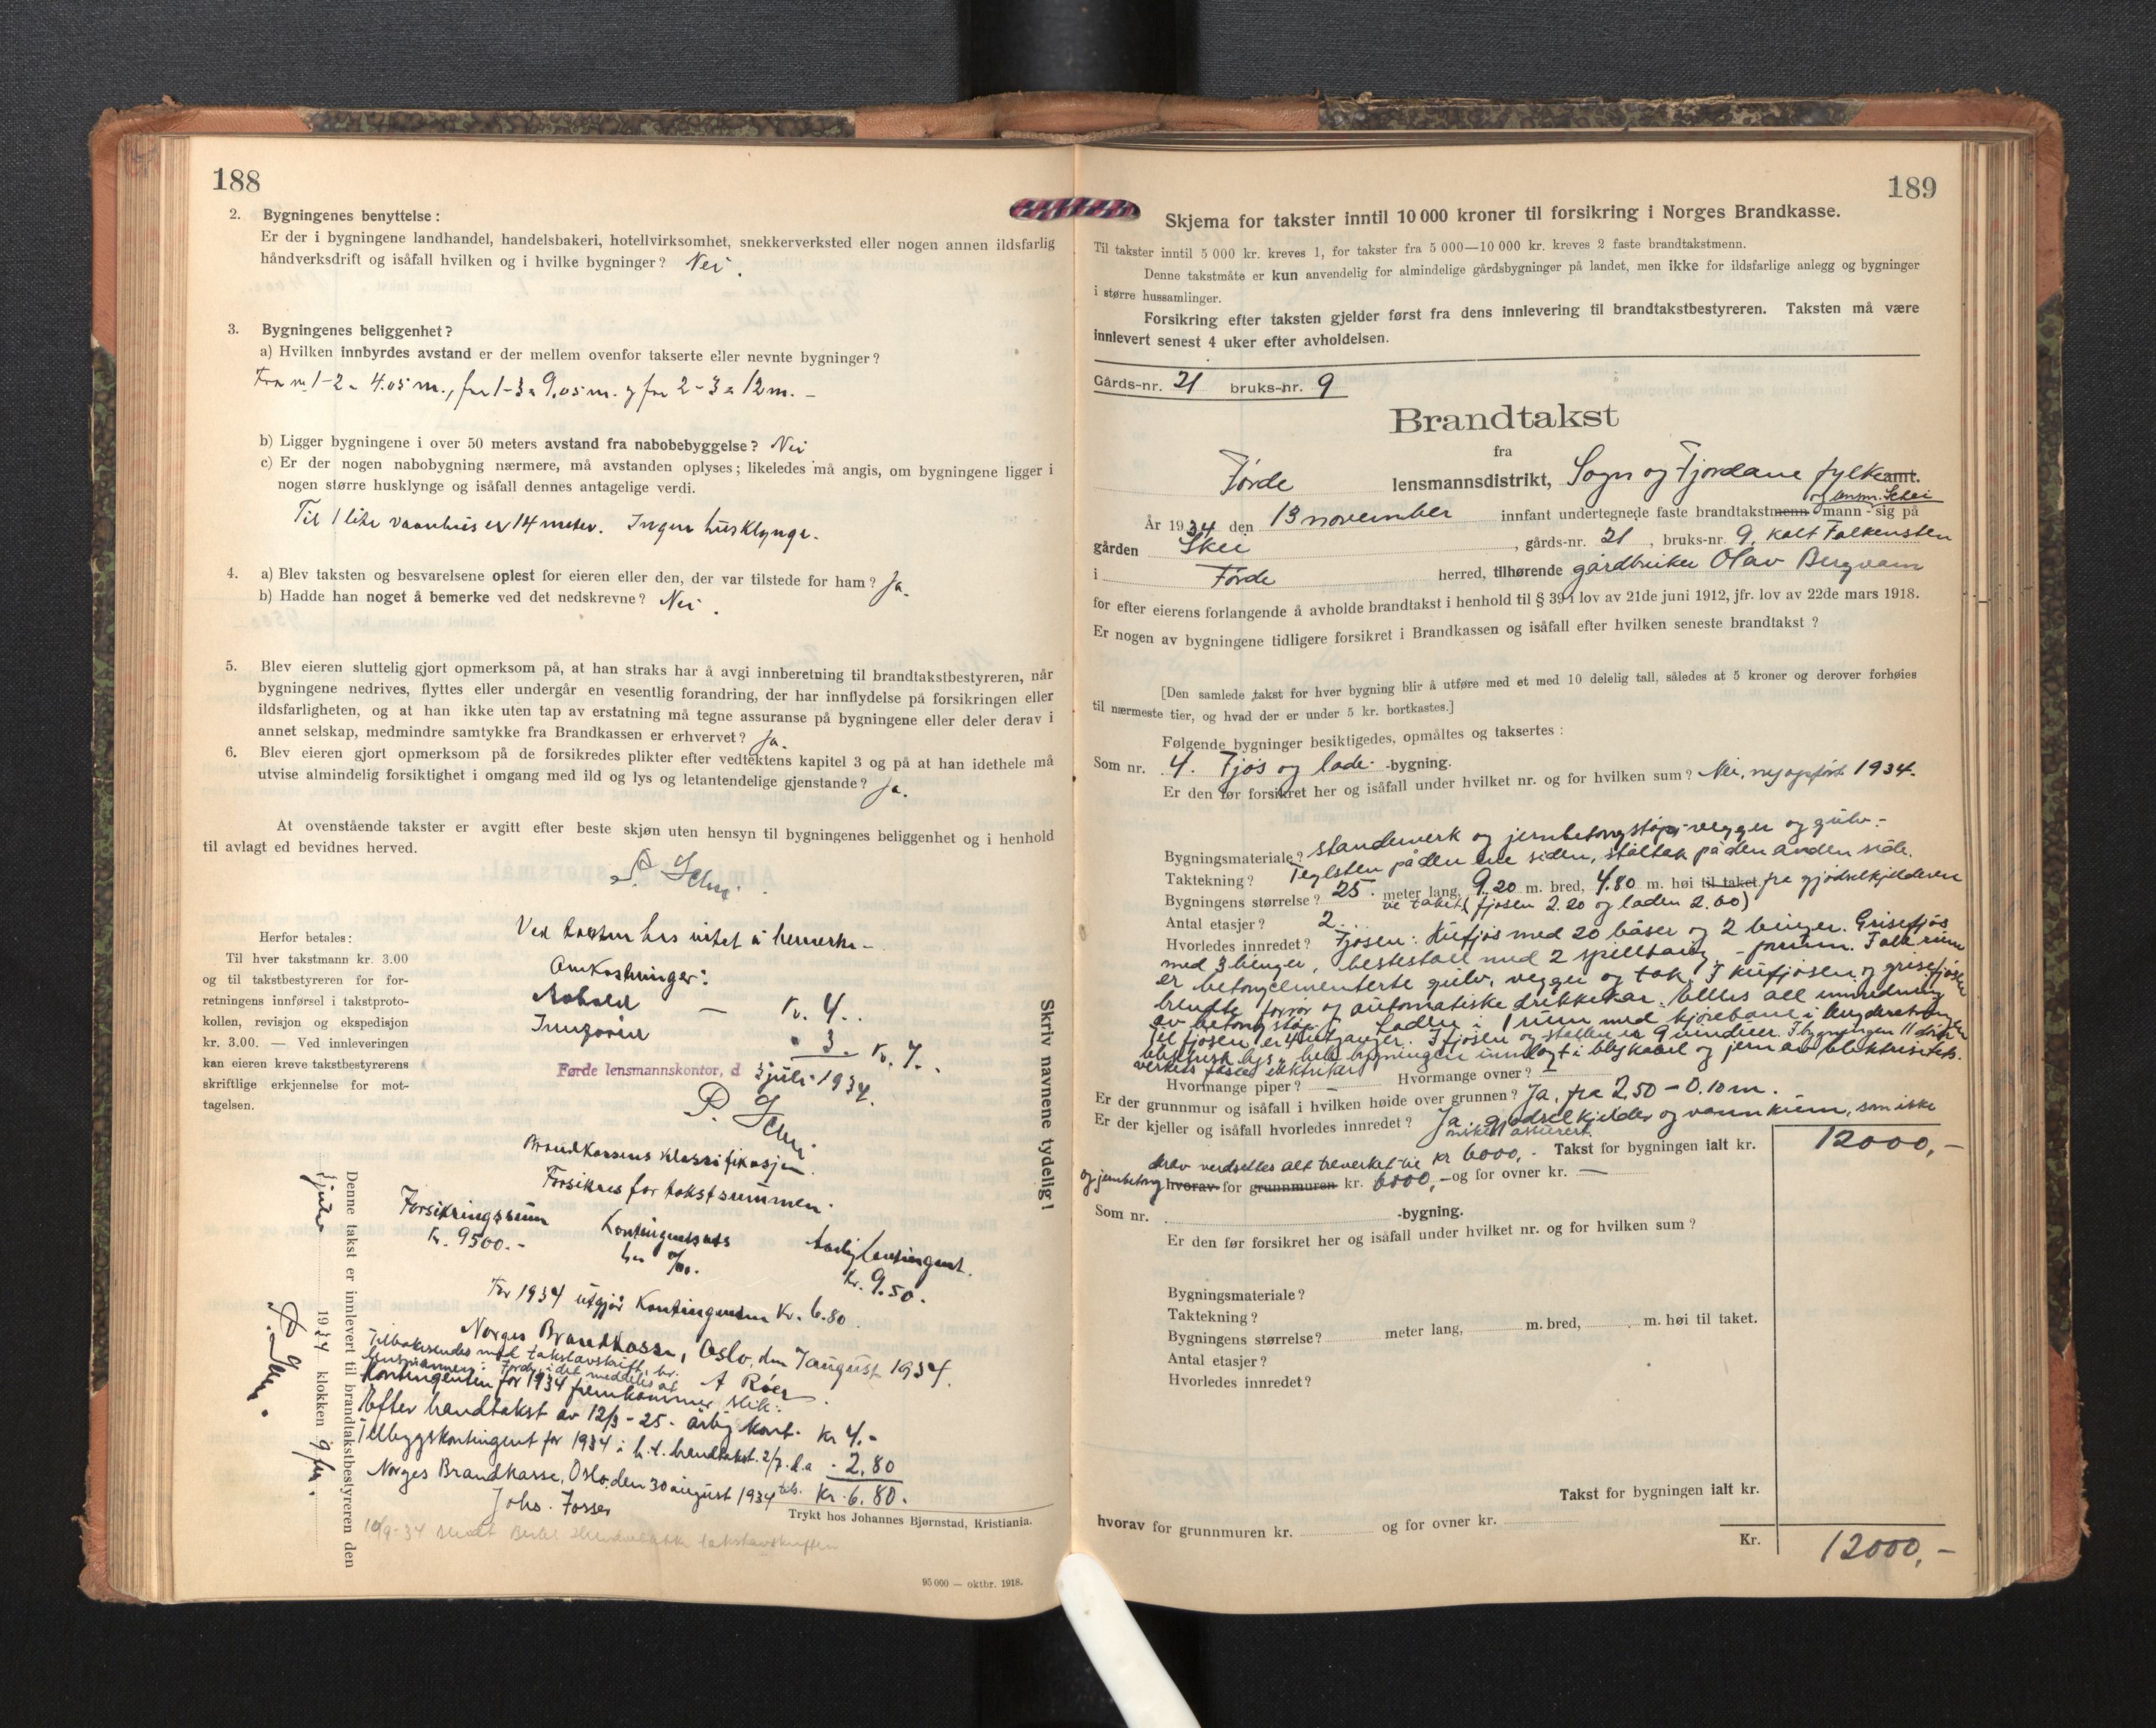 188
2. Bygningenes benyttelse:
Er der i bygningene landhandel, handelsbakeri, hotellvirksomhet, snekkerverksted eller nogen annen ildsfarlig
håndverksdrift og isåfall hvilken og i hvilke bygninger? Nei.
3. Bygningenes beliggenhet?
a) Hvilken innbyrdes avstand er der mellem ovenfor takserte eller nevnte bygninger?
Fra nr 1-2 = 4.05 m., fra 1-3 = 9,05 m. og fra 2-3 = 12 m. –
b) Ligger bygningene i over 50 meters avstand fra nabobebyggelse? Nei
c) Er der nogen nabobygning nærmere, må avstanden oplyses; likeledes må angis, om bygningene ligger i
nogen større husklynge og isåfall dennes antagelige verdi.
Til 1 lite vaanhus er 14 meter. Ingen husklynge.
4. a) Blev taksten og besvarelsene oplest for eieren eller den, der var tilstede for ham? Ja.
b) Hadde han noget å bemerke ved det nedskrevne? Nei.
5. Blev eieren sluttelig gjort opmerksom på, at han straks har å avgi innberetning til brandtakstbestyreren, når
bygningene nedrives, flyttes eller undergår en vesentlig forandring, der har innflydelse på forsikringen eller
ildsfarligheten, og at han ikke uten tap av erstatning må tegne assuranse på bygningene eller deler derav i
annet selskap, medmindre samtykke fra Brandkassen er erhvervet? Ja.
6. Blev eieren gjort opmerksom på de forsikredes plikter efter vedtektens kapitel 3 og på at han idethele må
utvise almindelig forsiktighet i omgang med ild og lys og letantendelige gjenstande? Ja.
At ovenstående takster er avgitt efter beste skjøn uten hensyn til bygningenes beliggenhet og i henhold
til avlagt ed bevidnes herved.
Herfor betales:
Til hver takstmann kr. 3.00
og til takstbestyreren for for-
retningens innførsel i takstproto-
kollen, revisjon og ekspedisjon
kr. 3.00. — Ved innleveringen
kan eieren kreve takstbestyrerens
skriftlige erkjennelse for mot-
tagelsen.
Ved taksten has intet å bemerke –
Omkostninger:
– Kr. 4..
" 3. Kr. 7..
Førde lensmannskontor, d 3 juli 1934.
Brandkassens klassifikasjon.
Forsikres for takstsummen.
Forsikringssum Kontingentsats Aarlig kontingent.
Kr. 9500.- Kr. 9.50.
For 1934 utgjør Kontingenten Kr. 6.80
Norges Brandkasse, Oslo, den 7 august 1934.
A Röer
Tilbakesendes med takstavskrift, hr.
lensmannen i Førde, idet meddeles at
Kontingenten for 1934 fremkommer slik:
Efter brandtakst av 12/3-25. årlig kont. Kr 4.-
Tilbygskontingent for 1934 i h.t. brandtakst 2/7. d.a - 2,80
Norges Brandkasse, Oslo, den 30 august 1934 tils. Kr. 6.80.
Johs. Fosser
10/9-34
Trykt hos Johannes Bjørnstad, Kristiania.
95 000 — oktbr. 1918.
Skriv navnene tydelig!
Denne takst er innlevert til brandtakstbestyreren den
3 juli 1934 klokken 9 fm.
189
Skjema for takster inntil 10 000 kroner til forsikring i Norges Brandkasse.
Til takster inntil 5 000 kr. kreves 1, for takster fra 5 000—10 000 kr. kreves 2 faste brandtakstmenn.
Denne takstmåte er kun anvendelig for almindelige gårdsbygninger på landet, men ikke for ildsfarlige anlegg og bygninger
i større hussamlinger.
Forsikring efter taksten gjelder først fra dens innlevering til brandtakstbestyreren. Taksten må være
innlevert senest 4 uker efter avholdelsen.
Gårds-nr. 21 bruks-nr. 9
Brandtakst
fra
Førde lensmannsdistrikt, Sogn og Fjordane fylke amt.
og lensm. Schei
År 1934 den 13 november innfant undertegnede faste brandtakstmenn mann - sig på
gården Skei, gårds-nr. 21, bruks-nr. 9, kalt Falkensten
i Førde herred, tilhørende gårdbruker Olav Bergvam
for efter eierens forlangende å avholde brandtakst i henhold til § 39 i lov av 21de juni 1912, jfr. lov av 22de mars 1918.
Er nogen av bygningene tidligere forsikret i Brandkassen og isåfall efter hvilken seneste brandtakst?
[Den samlede takst for hver bygning blir å utføre med et med 10 delelig tall, således at 5 kroner og derover forhøies
til nærmeste tier, og hvad der er under 5 kr. bortkastes.]
Følgende bygninger besiktigedes, opmåltes og taksertes:
Som nr. 4. Fjøs og lade- -bygning.
Er den før forsikret her og isåfall under hvilket nr. og for hvilken sum? Nei, ny opført 1934.
Bygningsmateriale? standerverk og jernbetongstøp vegger og gulv.-
Taktekning? Teglsten på den ene siden, ståltak på den anden side.
Bygningens størrelse? 25. meter lang, 9.20 m. bred, 4.80 m. høi til taket. fra gjødselkjelderen
til taket (fjøsen 2.20 og laden 2.60)
Antal etasjer? 2..
Hvorledes innredet? Fjøsen: Kufjøs med 20 båser og 2 binger. Grisefjøs
med 3 binger, hestestall med 2 spilltaug, – forrum. I alle rum
er betongcementerte gulv, vegger og tak. I kufjøsen og grisefjøsen
brendte forrør og automatiske drikkekar. Elles all innredning
av betongstøp. Laden i 1 rum med kjørebane i lengderetningen
Til fjøsen er 4 utganger. I fjøsen og stallen er 9 vinduer. I bygningen 11 dører
elektrisk lys i hele bygningen innlagt i blykabel og jern av elektrisitets-
verkets faste elektriker
Hvormange piper? – Hvormange ovner?
Er der grunnmur og isåfall i hvilken høide over grunnen? Ja, fra 2,50 – 0.10 m.
Er der kjeller og isåfall hvorledes innredet? Ja, gjødselkjelder og vannkum, som ikke
ønskes assurert.
Takst for bygningen ialt kr. 12000,-
derav verdsettes alt treverket til kr 6000,-
og jernbetong hvorav for grunnmuren kr. 6000,- og for ovner kr. –
Som nr. -bygning.
Er den før forsikret her og isåfall under hvilket nr. og for hvilken sum?
Bygningsmateriale?
Taktekning?
Bygningens størrelse? meter lang, m. bred, m. høi til taket.
Antal etasjer?
Hvorledes innredet?
Takst for bygningen ialt kr.
hvorav for grunnmuren kr. og for ovner kr.
Kr. 12000,-